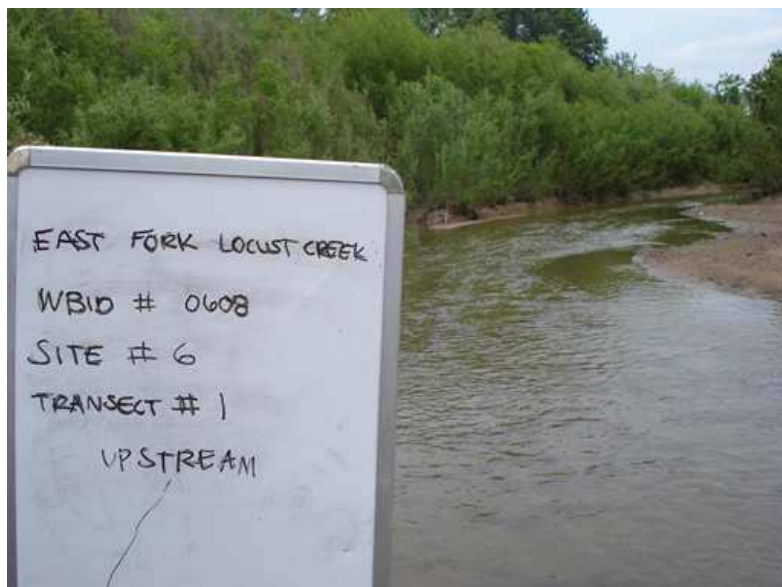 EAST FORK LOCUST CREEK
WBID # 0608
SITE # 6
TRANSECT # 1
UPSTREAM